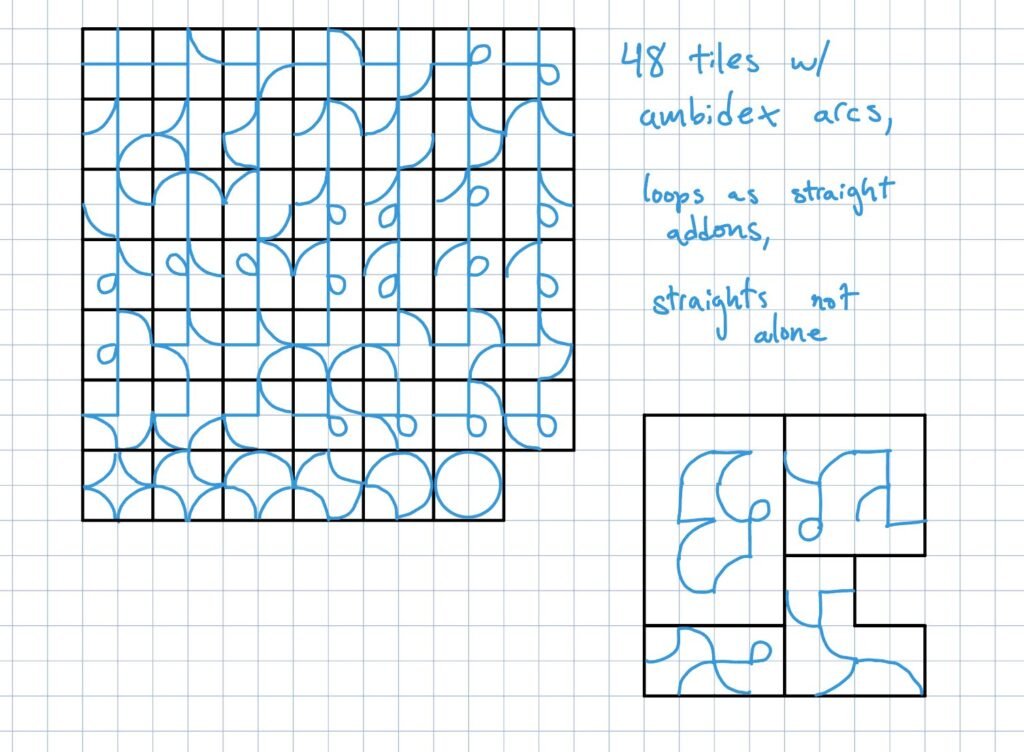 48 tiles w/
ambidex arcs,
loops as straight
addons,
straights not
alone